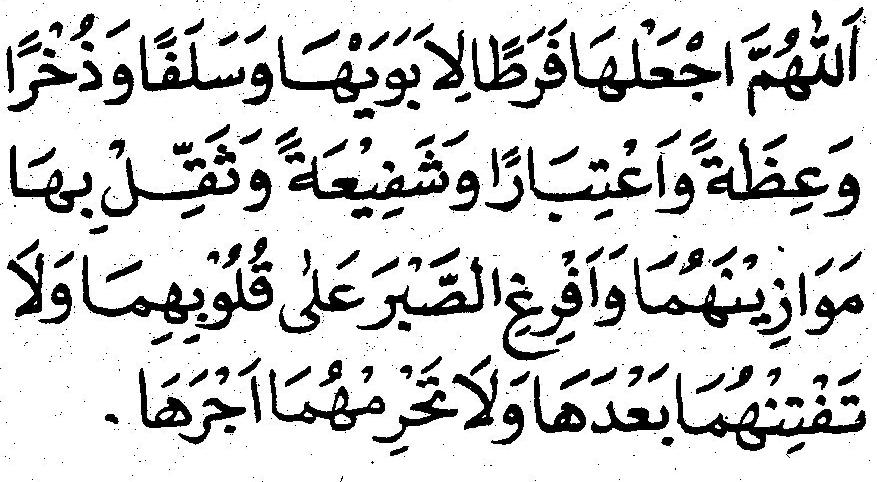 اَللّٰهُمَّ اجْعَلْهَا فَرَطًا لِاَبَوَيْهَا وَسَلَفًا وَذُخْرًا
وَعِظَةً وَاعْتِبَارًا وَشَفِيْعَةً وَثَقِّلْ بِهَا
مَوَازِيْنَهُمَا وَاَفْرِغِ الصَّبْرَ عَلٰى قُلُوْبِهِمَا وَلَا
تَفْتِنْهُمَا بَعْدَهَا وَلَا تَحْرِمْهُمَا اَجْرَهَا .